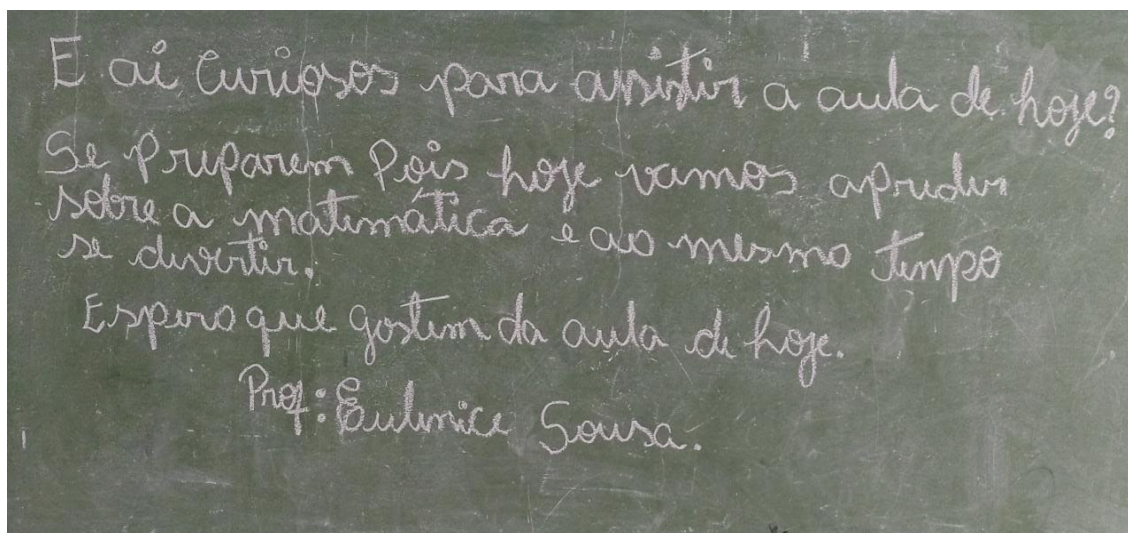 E aí curiosos para assistir a aula de hoje?
Se preparem Pois hoje vamos apreder
sobre a matemática e ao mesmo tempo
se divertir.
Espero que gostem da aula de hoje.
Prof: Eulenice Sousa.